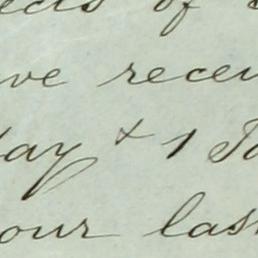 ects of
ve recei
day & 1 Ja
our las